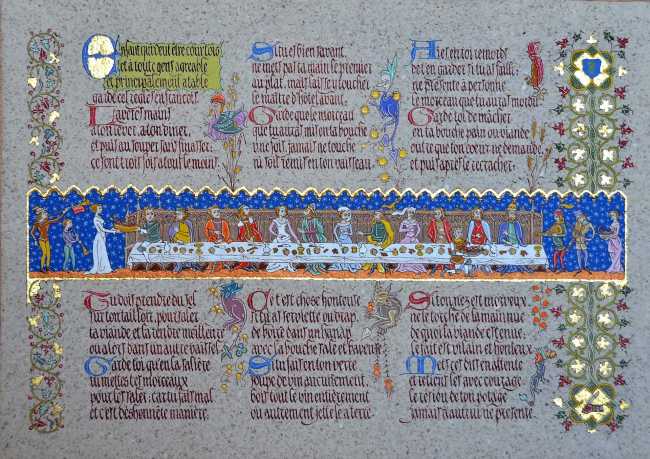 Enfant qui veut être courtois
et à toute gens agréable
et principalement à table
garde ces règles en français
Lave tes mains
à ton lever, à ton dîner,
et puis au souper sans finasser:
ce sont trois fois à tout le moins.
Si tu es bien savant,
ne mets pas ta main le premier
au plat, mais laisse y toucher
le maître d'hôtel avant.
Garde que le morceau
que tu auras mis en ta bouche
une fois, jamais ne touche
ni soit remis en ton vaisseau
Aie s en toi remords
de t'en garder si tu as failli:
ne présente à personne
le morceau que tu auras mordu
Garde toi de mâcher
en ta bouche pain ou viande
outre que ton coeur ne demande,
et puis après le recracher.
Tu dois prendre du sel
sur ton tailloir, pour saler
ta viande et la rendre meilleure
ou alors dans un autre vaissel
Garde toi qu'en la salière
tu mettes tes morceaux
pour les saler: car tu fais mal
et c'est déshonnête manière.
C'est chose honteuse
si tu as serviette ou drap
de boire dans un hanap
avec la bouche sale et baveuse
Si tu fais en ton verre
soupe de vin aucunement,
bois tout le vin entièrement
ou autrement jette le à terre
Si ton nez est morveux
ne le torche de la main nue
de quoi ta viande est tenue:
le fait est vilain et honteux
Mets ces dits en attente
et retient les avec courage
le de ton potage
jamais à autrui ne présente.